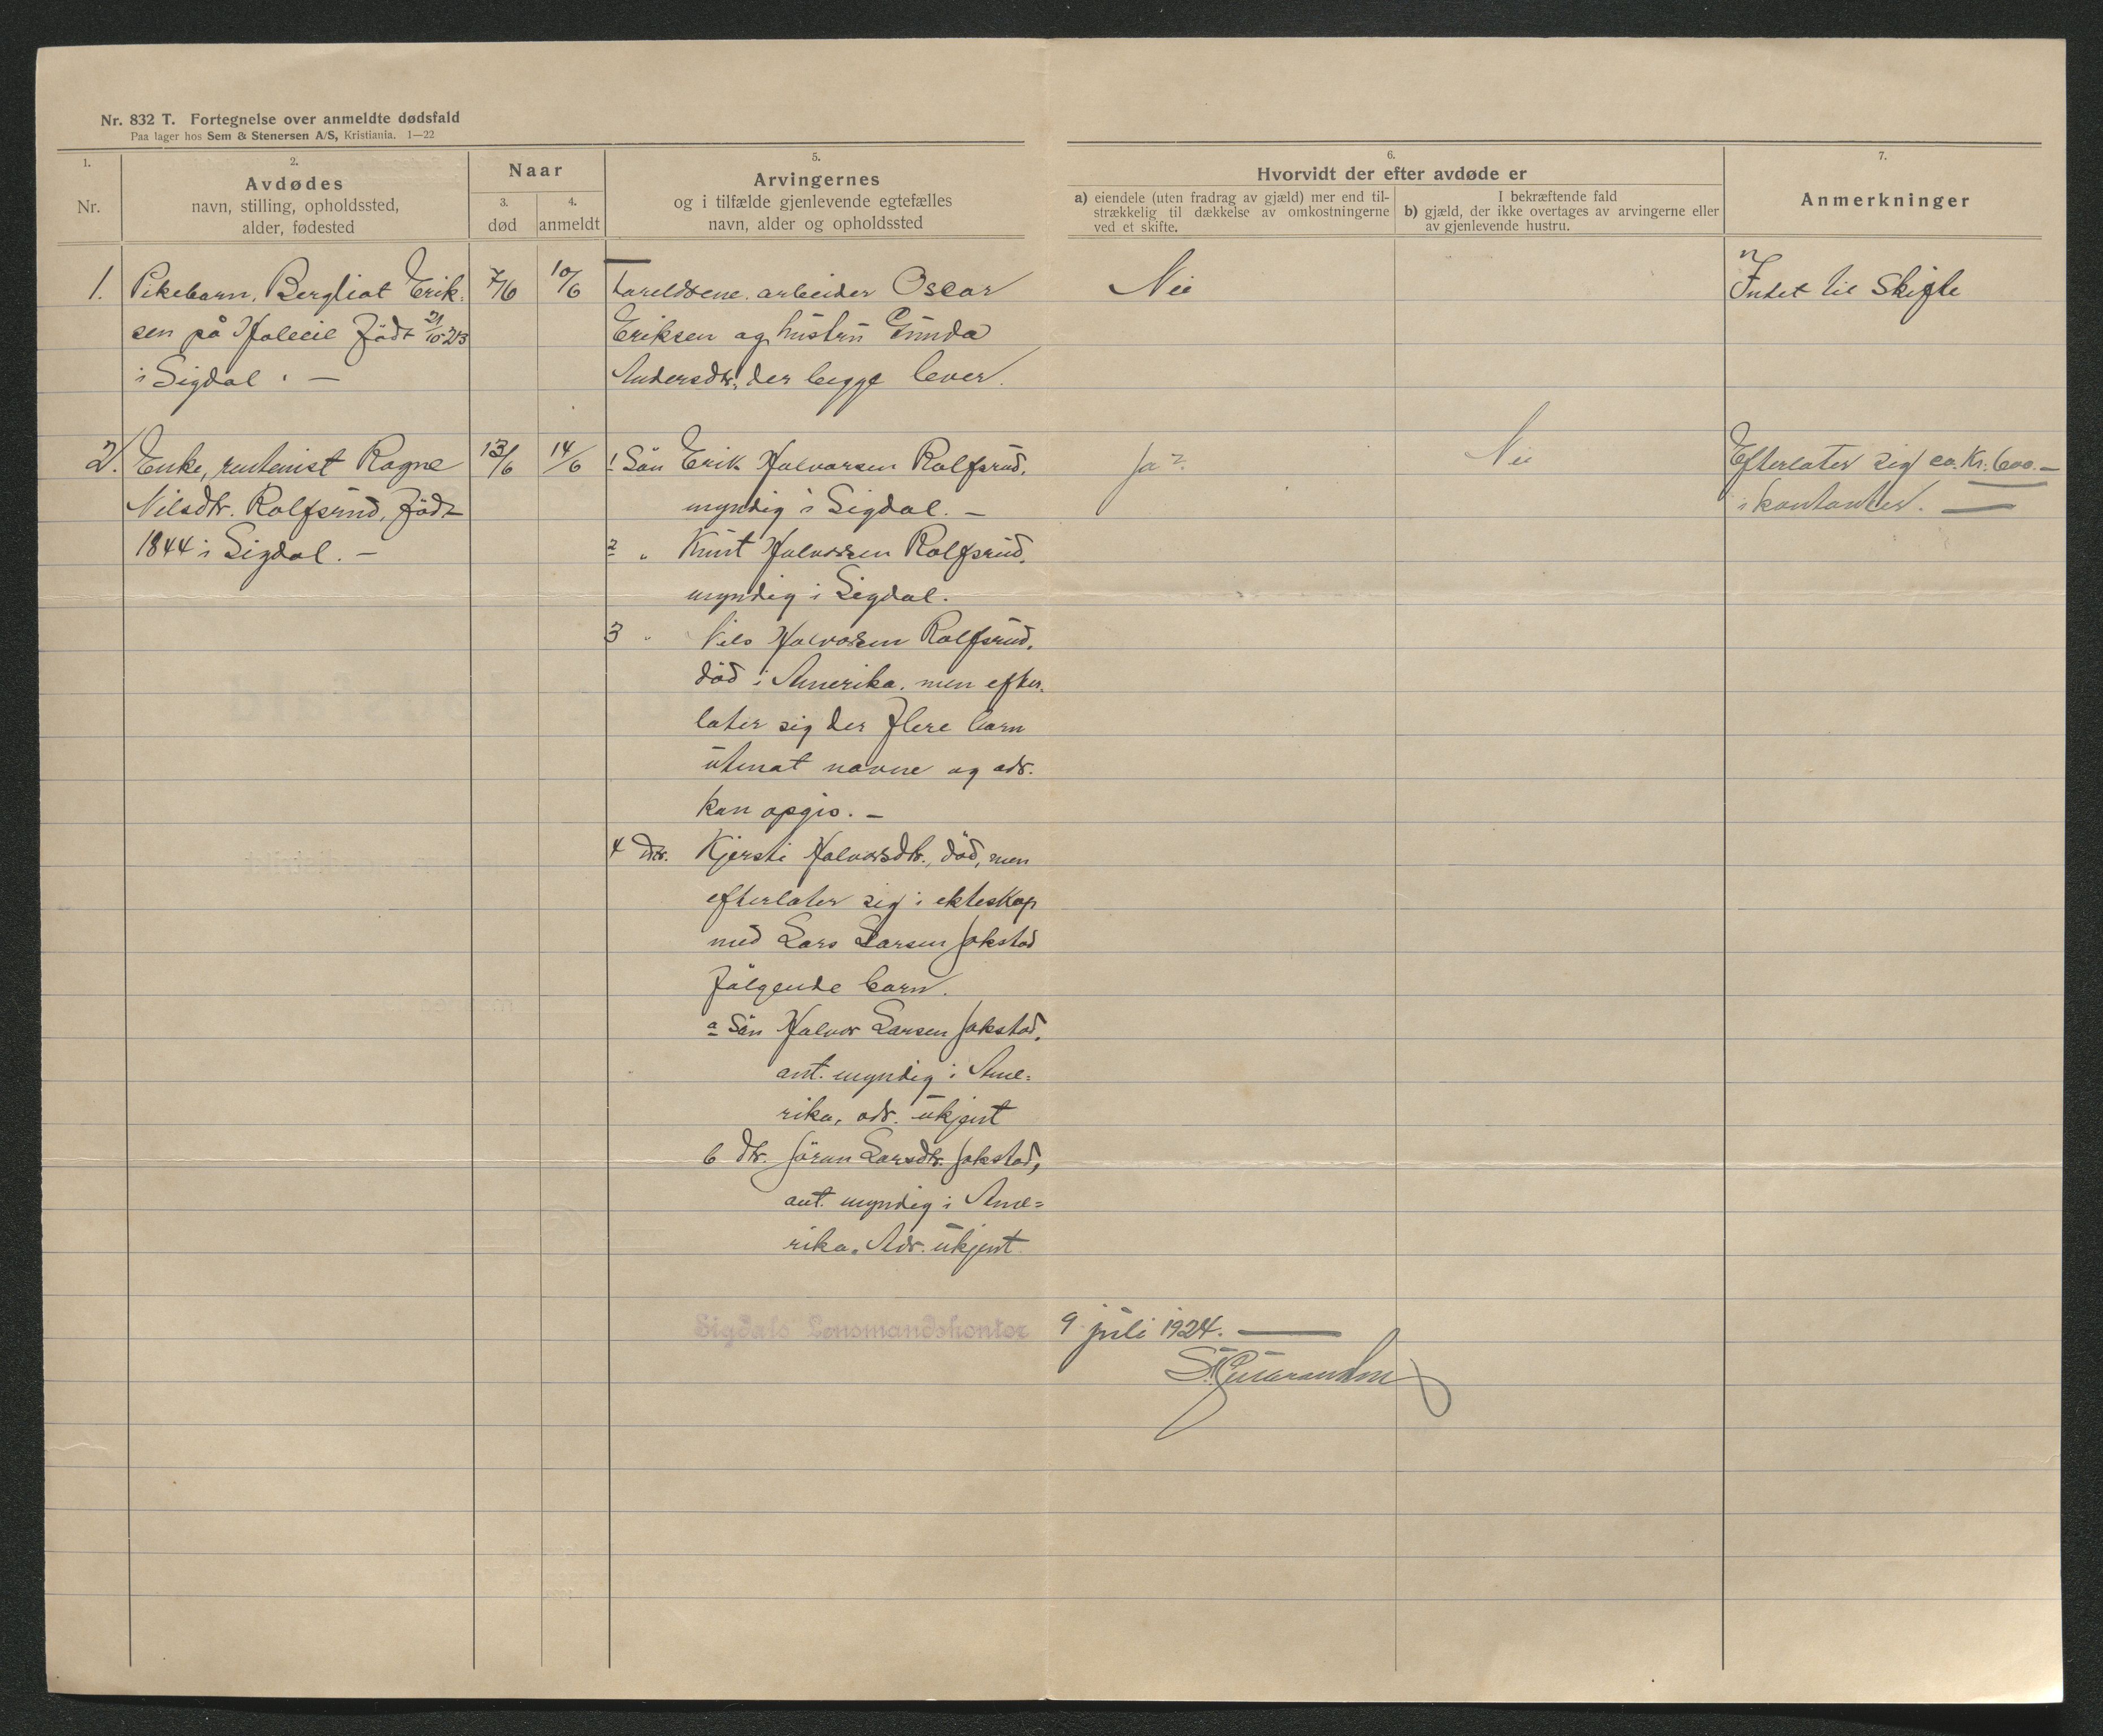 Nr. 832 T. Fortegnelse over anmeldte dødsfald
Paa lager hos Sem & Stenersen A/S, Kristiania. 1—22
1.
Nr.
2.
Avdødes
navn, stilling, opholdssted,
alder, fødested
Naar
3.
død
4.
anmeldt
5.
Arvingernes
og i tilfælde gjenlevende egtefælles
navn, alder og opholdssted
6.
Hvorvidt der efter avdøde er
a) eiendele (uten fradrag av gjæld) mer end til-
strækkelig til dækkelse av omkostningerne
ved et skifte.
I bekræftende fald
b) gjæld, der ikke overtages av arvingerne eller
av gjenlevende hustru.
7.
Anmerkninger
1. Pikebarn, Bergliot Erik-
sen på født 21/10-23
i Sigdal. —
7/6
10/6
Foreldrene, arbeider Oscar
Eriksen og hustru Gunda
Andersdtr., der begge lever.
Nei
Intet til Skifte
2. Enke, rentenist Ragne
Nilsdtr. Rolfsrud, født
1844 i Sigdal. —
13/6
14/6
1 Sön Erik Halvorsen Rolfsrud,
myndig i Sigdal. —
2 " Knut Halvorsen Rolfsrud,
myndig i Sigdal.
3 " Nils Halvorsen Rolfsrud,
död i Amerika, men efter-
later sig der flere barn
utenat navne og adr.
kan opgis. —
4 Dtr. Kjersti Halvorsdtr., död, men
efterlater sig i ekteskap
med Lars Larsen Jokstad
følgende barn.
a Sön Halvor Larsen Jokstad,
ant. myndig i Ame-
rika, adr. ukjent
b dtr. Jöran Larsdtr. Jokstad,
ant. myndig i Ame-
rika. Adr. ukjent
Ja?
Nei
Efterlater sig ca. Kr. 600.—
i kontanter. —
Sigdals Lensmandskontor 9 juli 1924. —